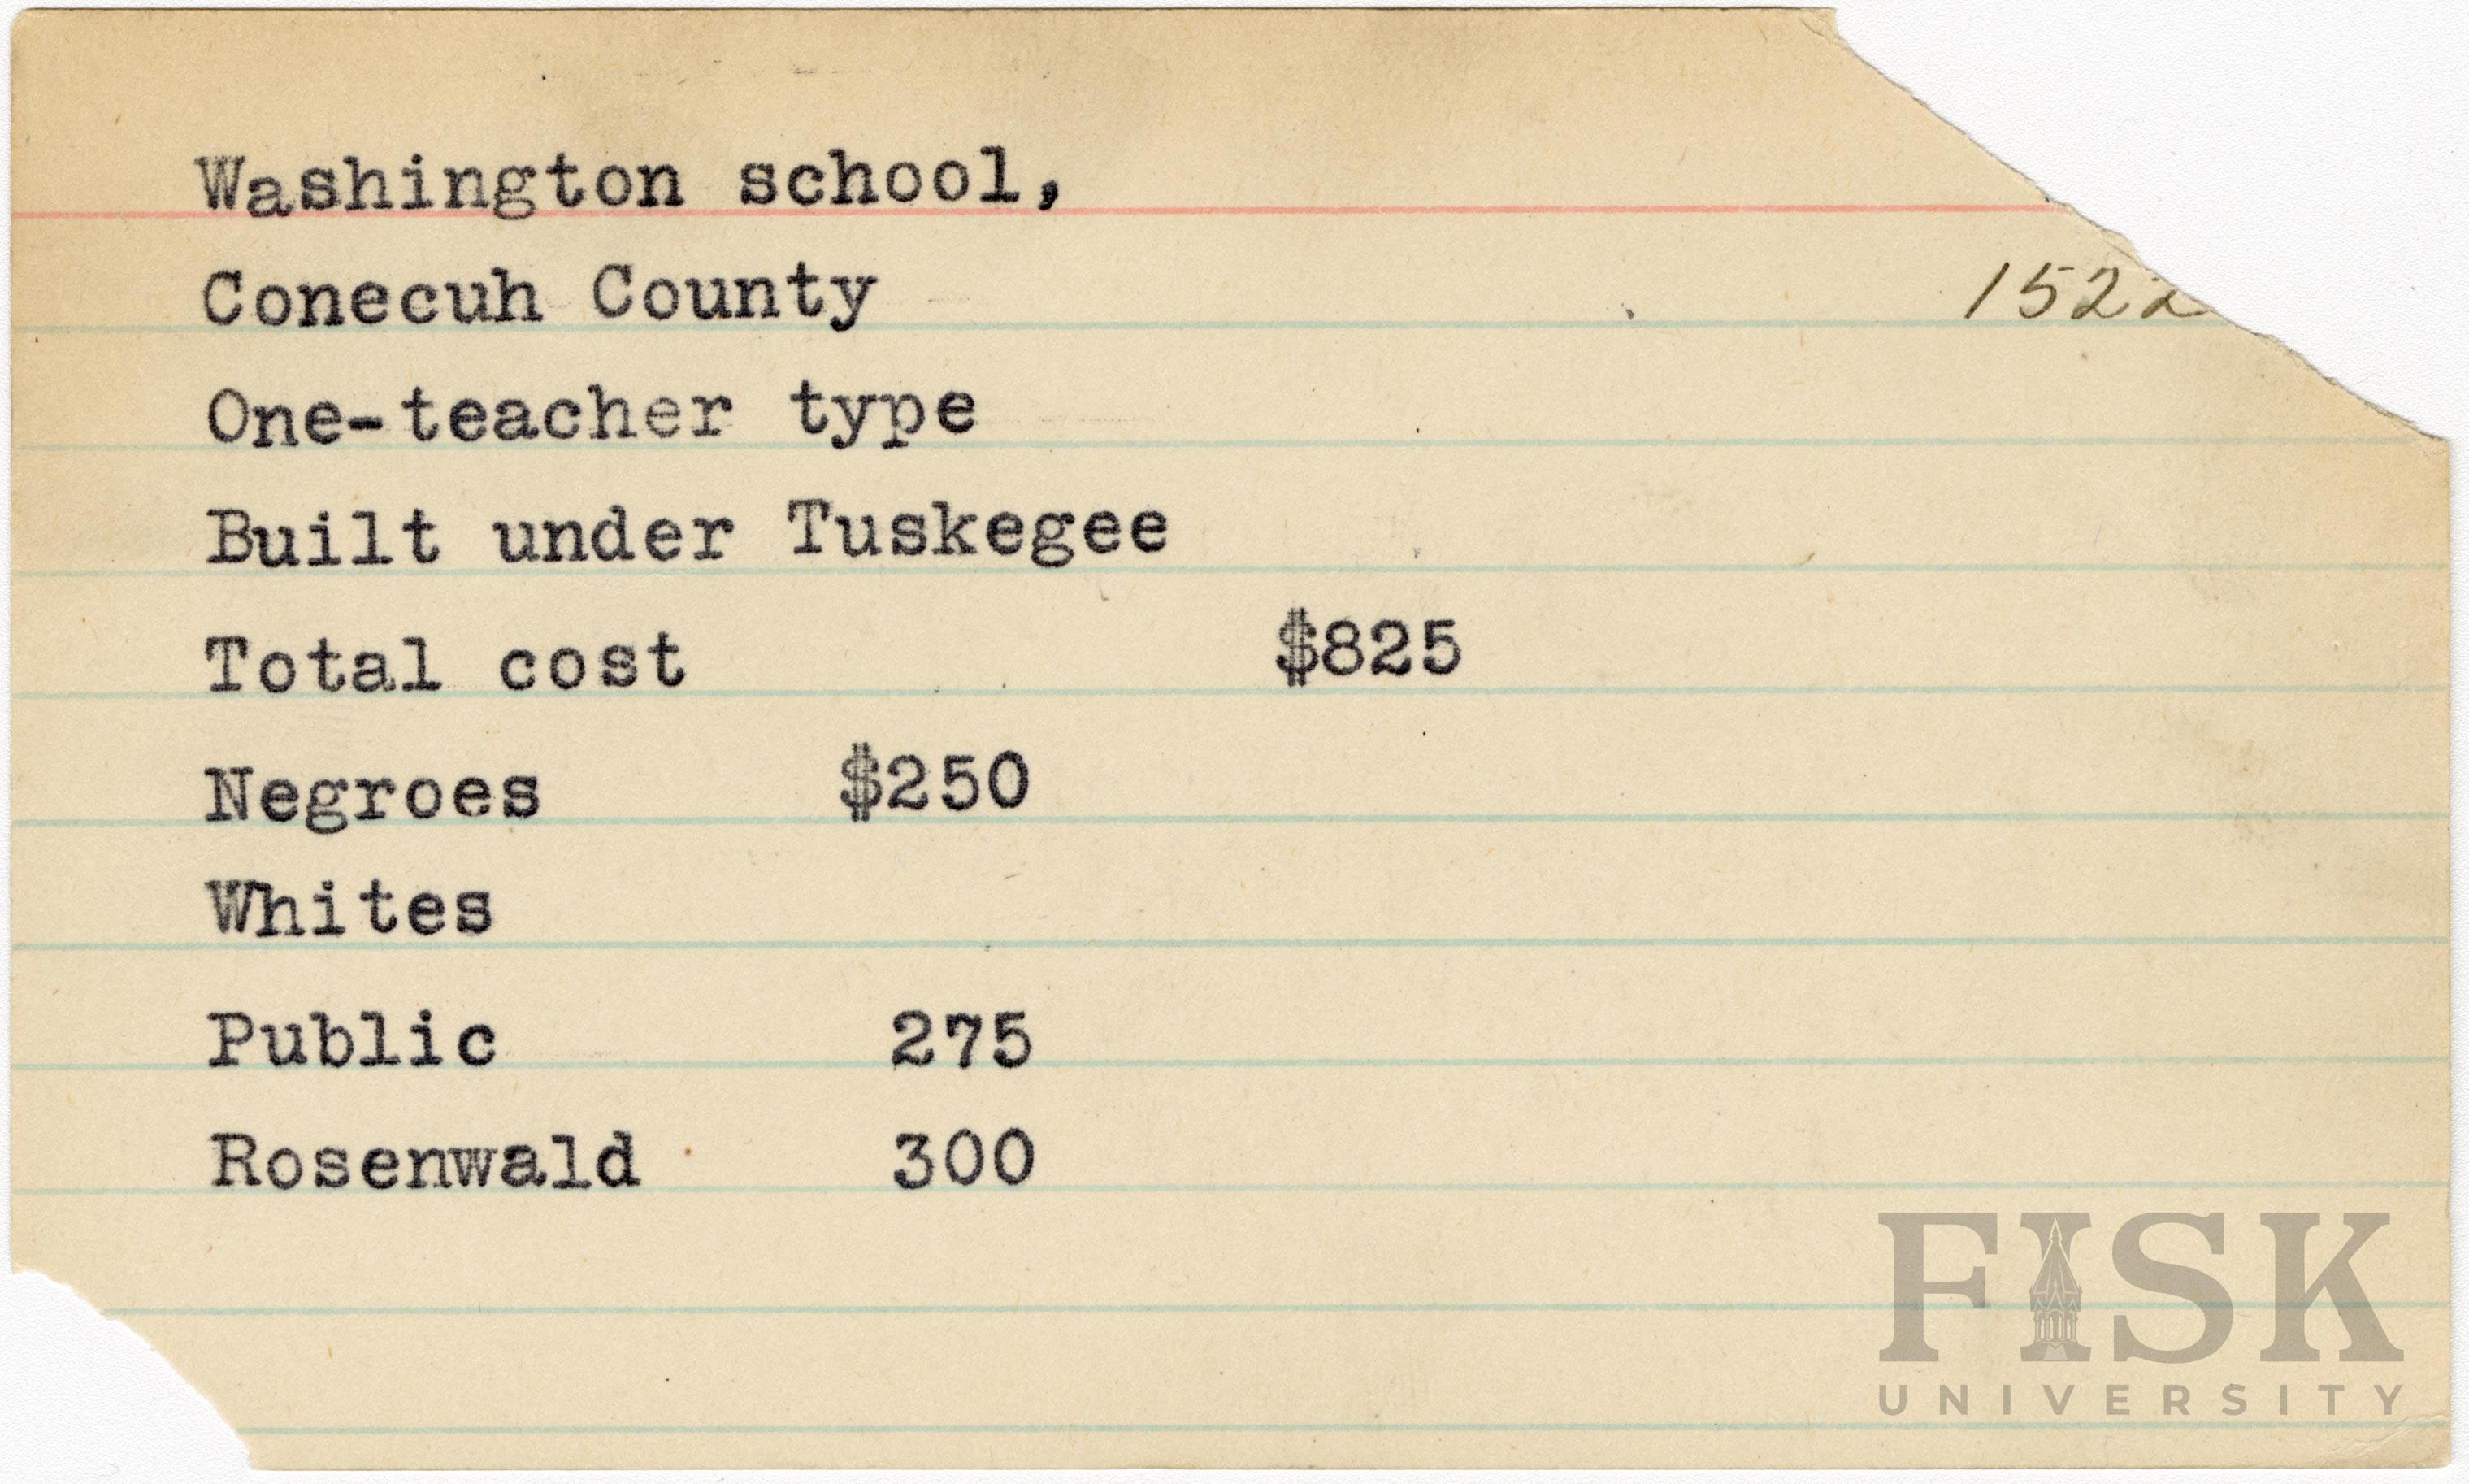 Washington school,
Conecuh County
1522
One-teacher type
Built under Tuskegee
Total cost $825
Negroes $250
Whites
Public 275
Rosenwald 300
FISK
UNIVERSITY